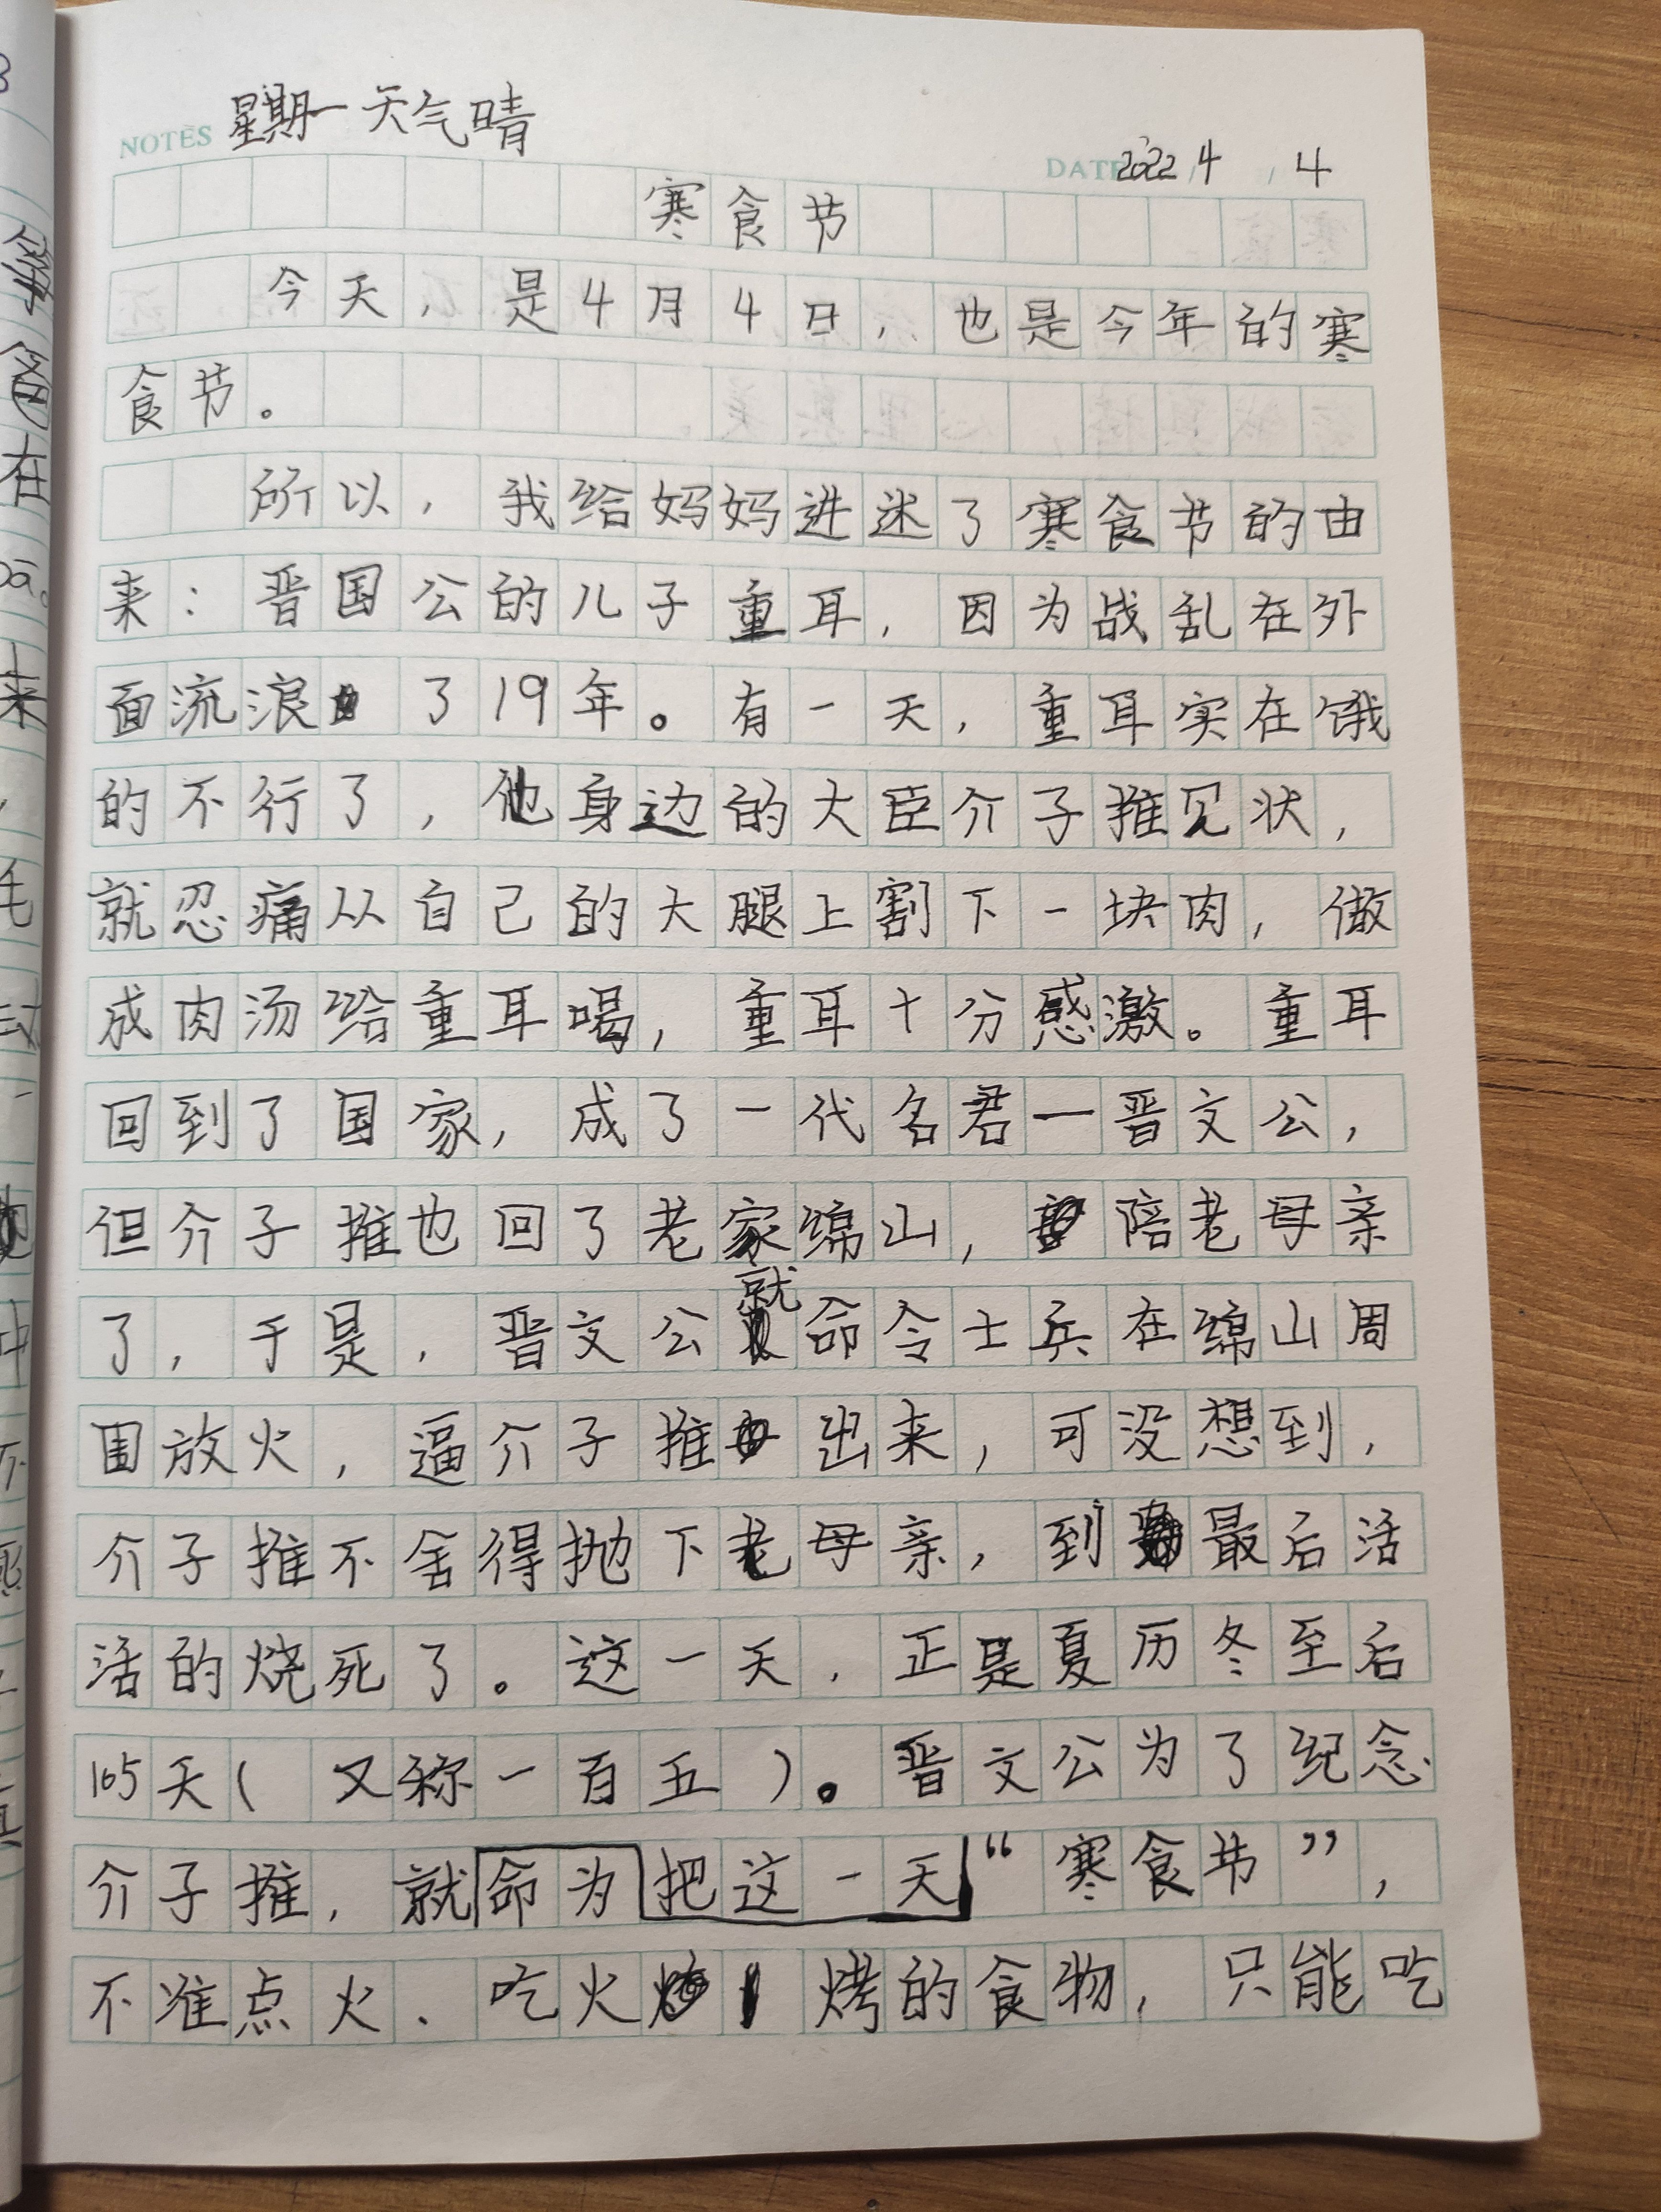 星期一天气晴
NOTES
DATE 2022/4/4
寒食节
今天，是4月4日，也是今年的寒
食节。
所以，我给妈妈进迷了寒食节的由
来：晋国公的儿子重耳，因为战乱在外
面流浪了19年。有一天，重耳实在饿
的不行了，他身边的大臣介子推见状，
就忍痛从自己的大腿上割下一块肉，做
成肉汤给重耳喝，重耳十分感激。重耳
回到了国家，成了一代名君一晋文公，
但介子推也回了老家绵山，陪老母亲
了，于是，晋文公就命令士兵在绵山周
围放火，逼介子推出来，可没想到，
介子推不舍得抛下老母亲，到最后活
活的烧死了。这一天，正是夏历冬至后
105天（又称一百五）。晋文公为了纪念
介子推，就命为把这一天“寒食节”，
不准点火、吃火烤的食物，只能吃